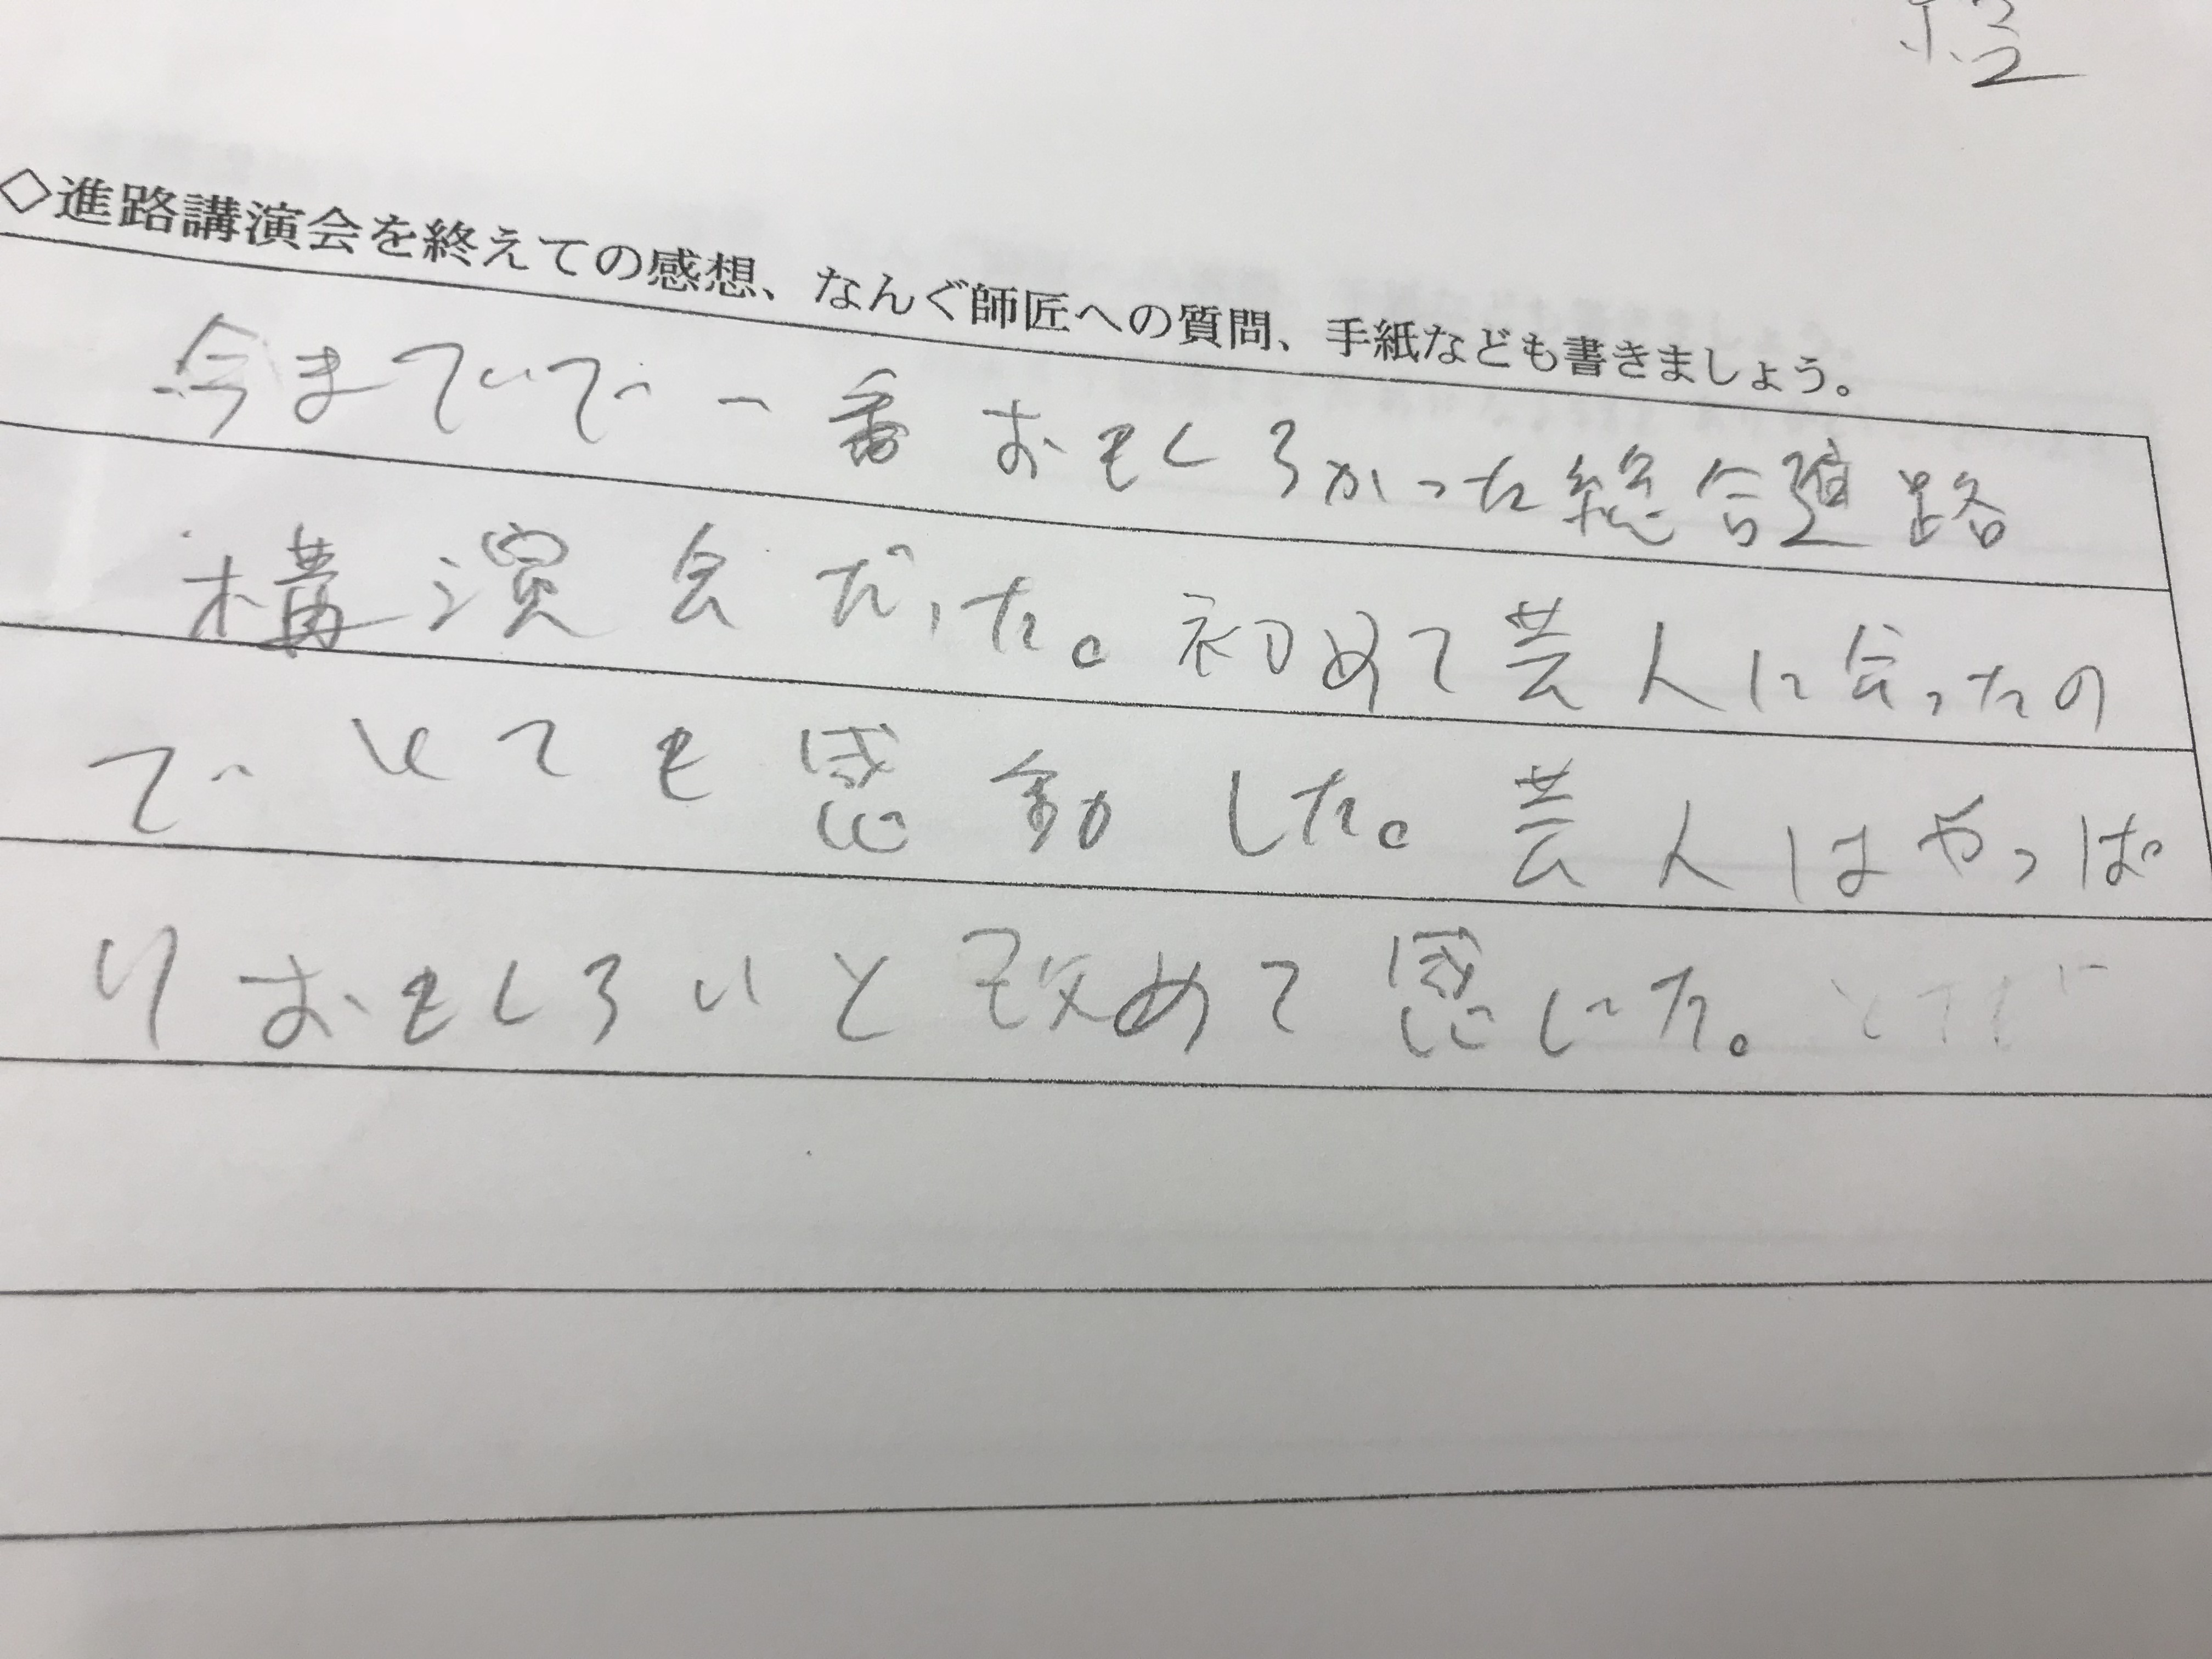 ◇進路講演会を終えての感想、なんぐ師匠への質問、手紙なども書きましょう。
今までで一番おもしろかった総合進路
構演会だった。初めて芸人に会ったの
でとても感動した。芸人はやっぱ
りおもしろいと改めて感じた。